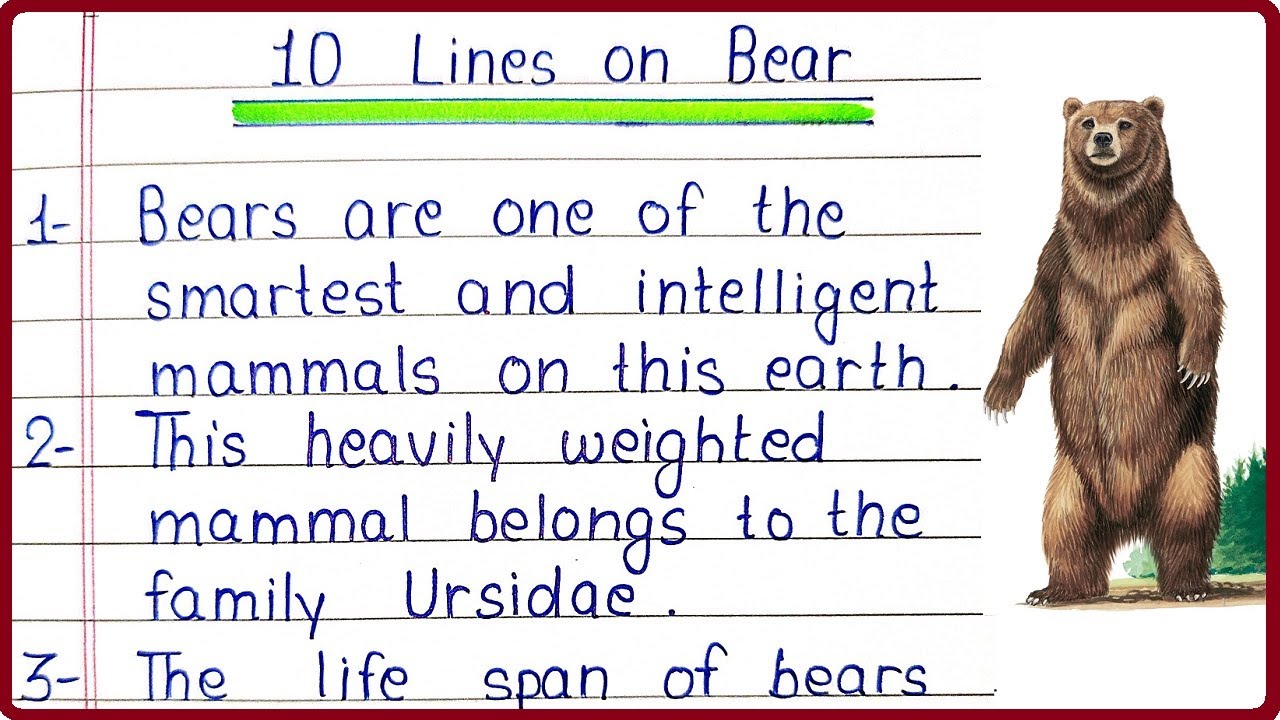 10 Lines on Bear
1- Bears are one of the
smartest and intelligent
mammals on this earth.
2- This heavily weighted
mammal belongs to the
family Ursidae.
3- The life span of bears